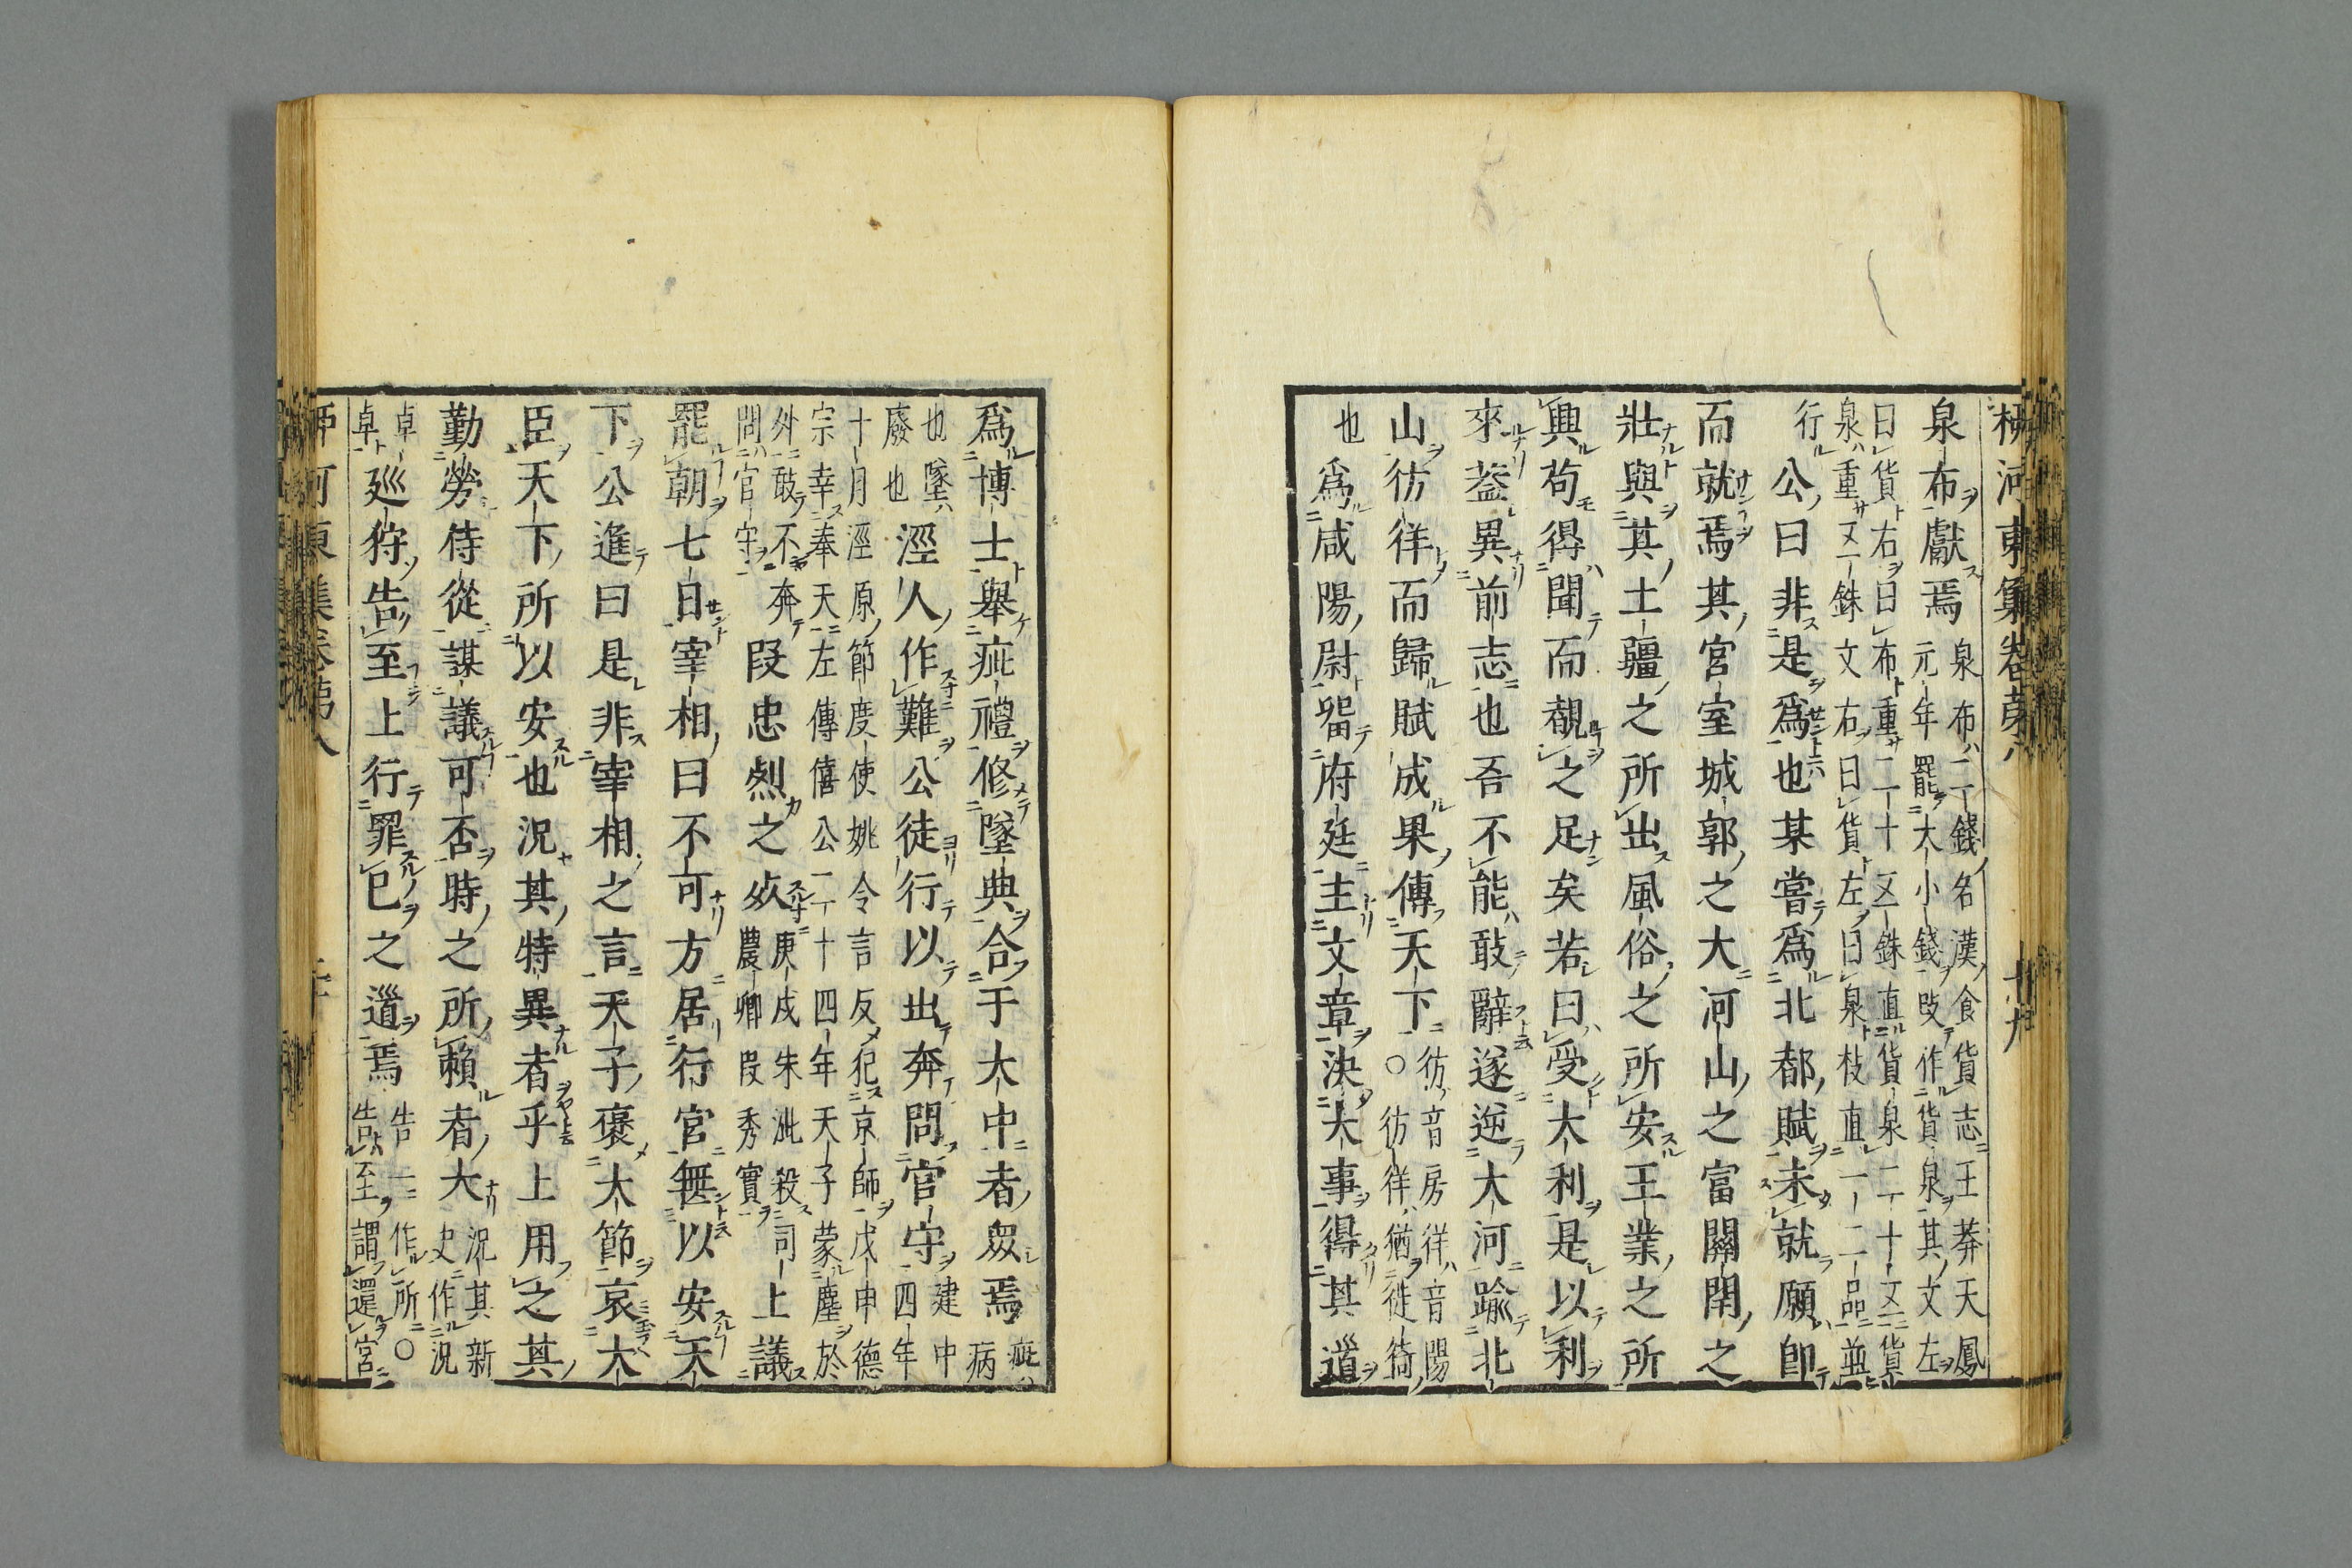 柳河東集卷第八 十九
泉布獻焉泉布二錢名漢食貨志王莽天鳳
元年罷大小錢改作貨泉其文左
曰貨右曰布重二十五銖直貨泉二十五貨
泉重五銖文右曰貨左曰泉枝直一二品並
行公曰非是爲也某嘗爲北都賦未就願即
而就焉其宮室城郭之大河山之富關閉之
壯與其土疆之所出風俗之所安王業之所
興苟得聞而覩之足矣若曰受大利是以利
來葢異前志也吾不能敢辭遂逆大河踰北
山彷徉而歸賦成果傳天下○彷音房徉音陽
彷徉猶徙倚
也爲咸陽尉留府廷主文章決大事得其道
爲博士舉疵禮修墜典合于大中者衆焉疵
病
也墜
廢也涇人作難公徒行以出奔問官守建中
四年
十月涇原節度使姚令言反犯京師戊申德
宗幸奉天左傳僖公二十四年天子蒙塵於
外敢不奔
問官守段忠烈之死上議
庚戌朱泚殺司
農卿段秀實
罷朝七日宰相曰不可方居行宮無以安天
下公進曰是非宰相之言天子褒大節哀大
臣天下所以安也況其特異者乎上用之其
勤勞侍從謀議可否時之所賴者大況其新
史作況
卓
卓廵狩告至上行罪已之道焉告二作所○
告至謂還宮
柳河東集卷第八 二十